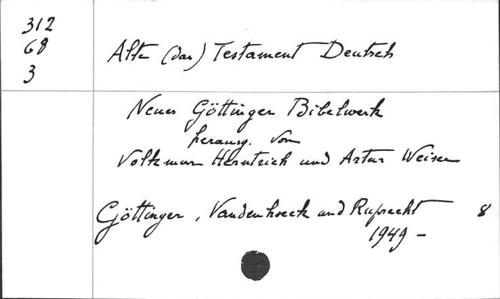 312
68
3
Alte (das) Testament Deutsch
Neues Göttinger Bibelwerk
herausg. von
Volkmar Herntrich und Artur Weiser
Göttingen, Vandenhoeck und Ruprecht 8
1949 -